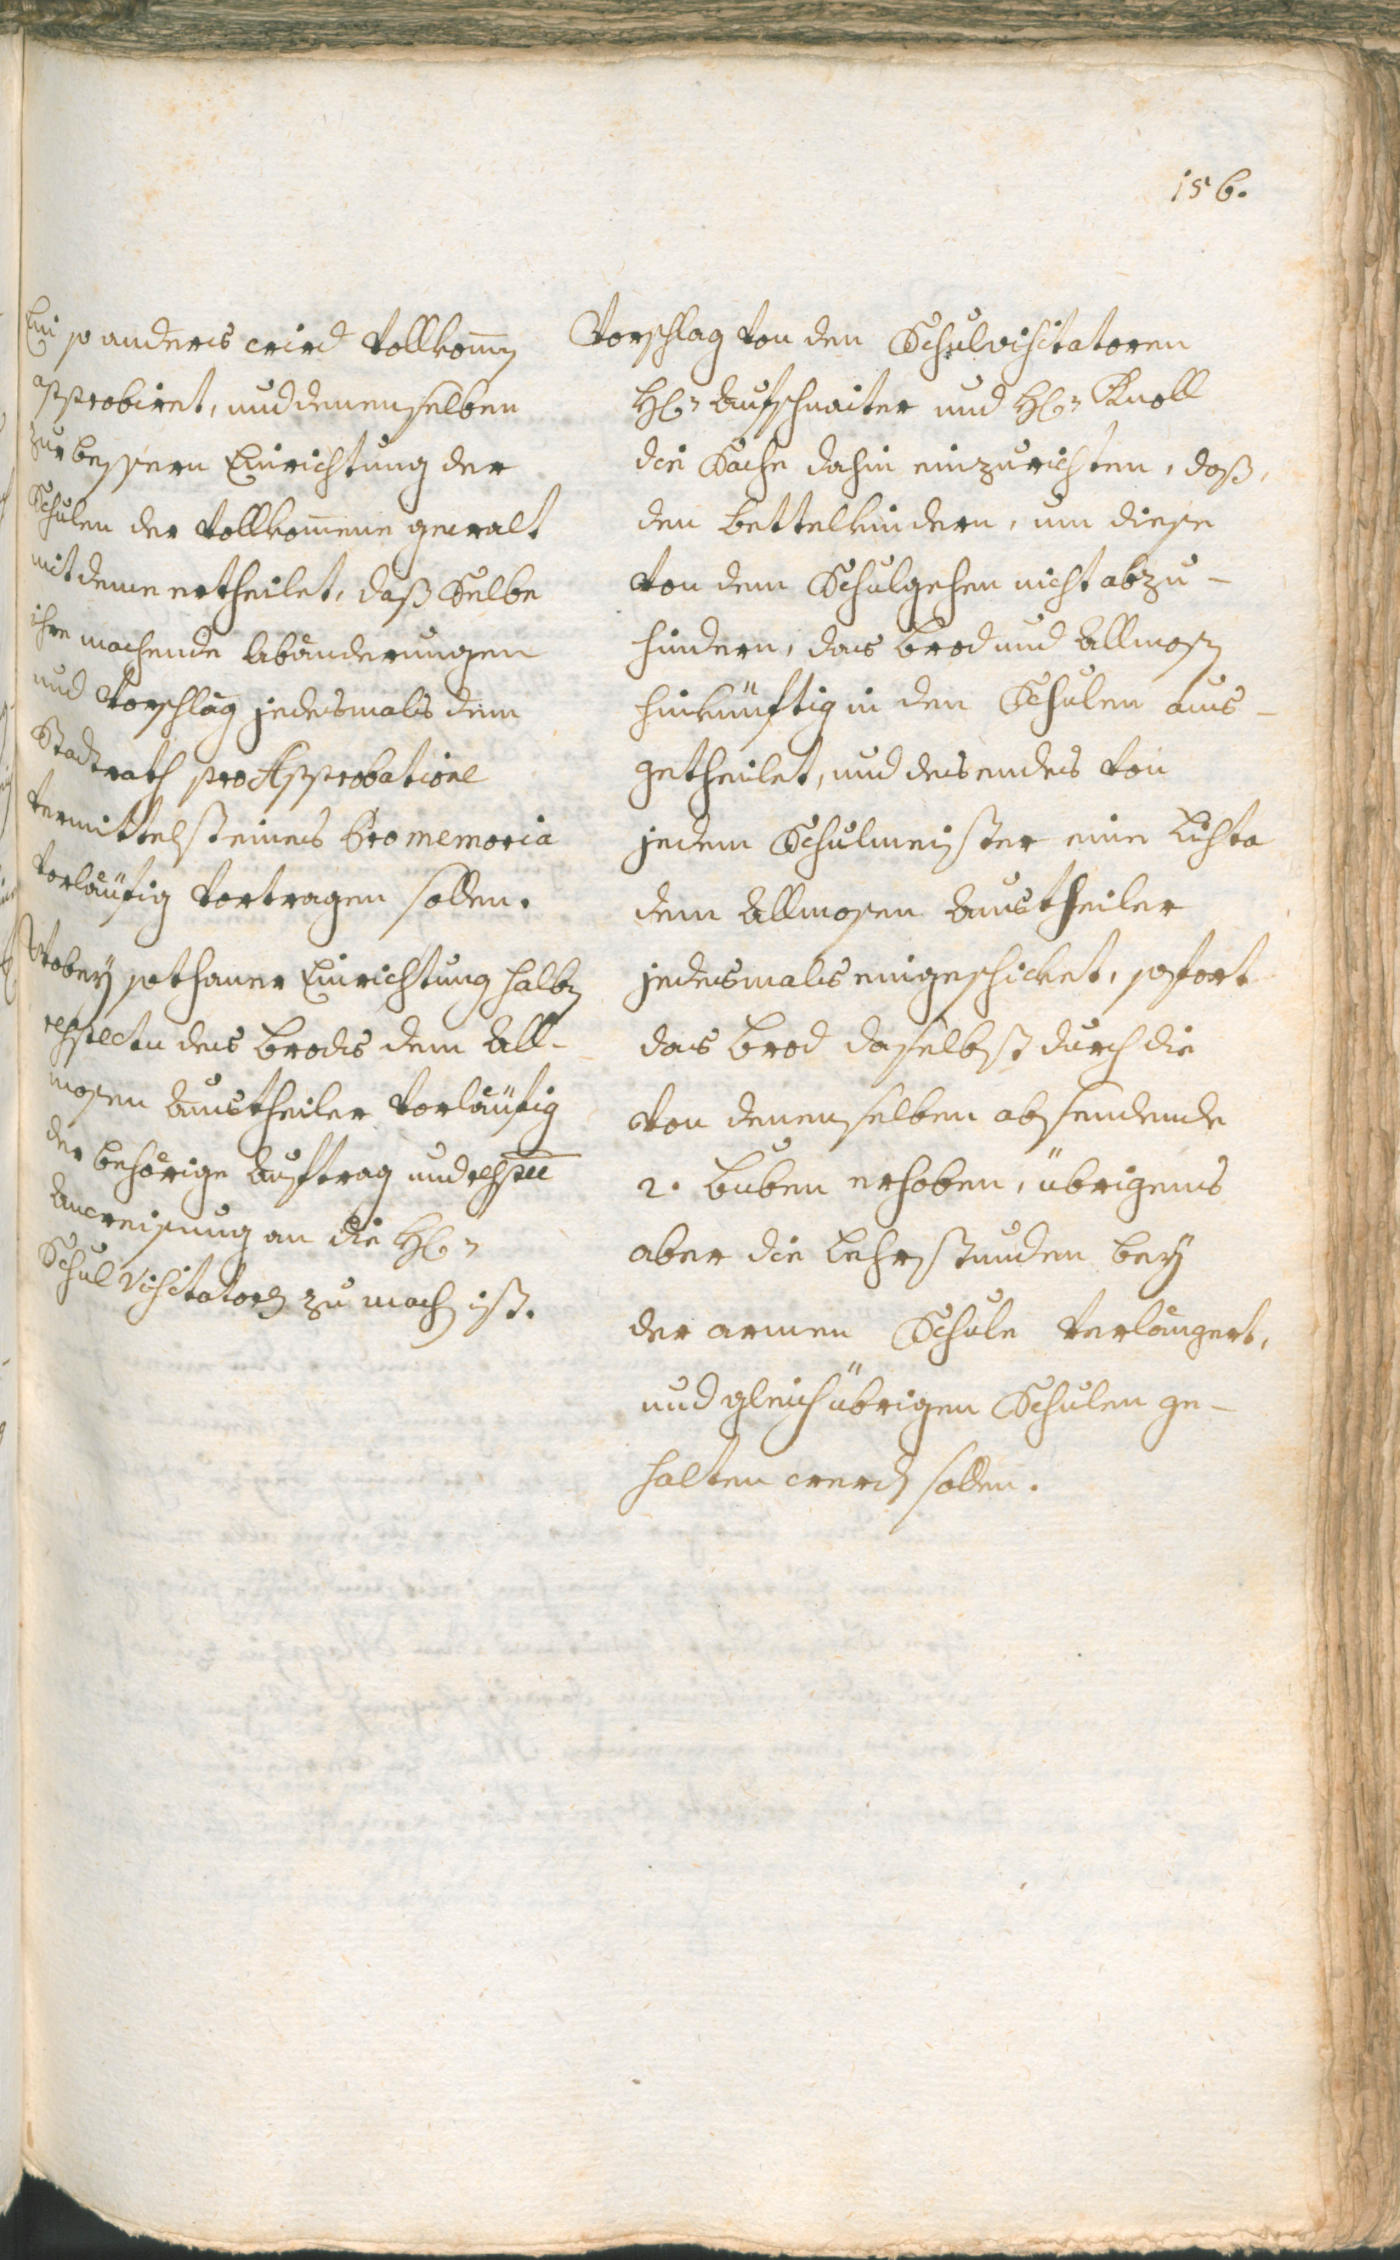 156.
Ein so anders wird vollkom̄en
approbiret, und denenselben
zur bessern Einrichtung der
Schulen der vollkom̄ene gewalt
mit deme ertheilet, daß Selbe
ihre machende Abänderungen
und Vorschläg jedesmals dem
Stadtrath pro Approbatione
vermittelst eines Promemoria
vorläufig vortragen sollen.
Wobey sothaner Einrichtung halben
respectu des Brods dem All-
mosen Austheiler vorläufig
der behörige Auftrag und respve
Anweisung an die H:
Schul Visitatorn zu machen ist.
Vorschlag von den Schulvisitatoren
H: Aufschnaiter und H: Knoll
die Sache dahin einzurichten, daß,
den Bettelkindern, um diese
von dem Schulgehen nicht abzu-
hindern, das Brod und Allmosen
hinkünftig in den Schulen aus-
getheilet, und des endes von
jedem Schulmeister eine Lista
dem Allmosen Austheiler
jedesmals eingeschicket, sofort
das Brod daselbst durch die
von denenselben absendende
2. Buben erhoben, übrigens
aber die Lehrstunden bey
der armen Schule verlängert,
und gleich übrigen Schulen ge-
halten werden sollen.